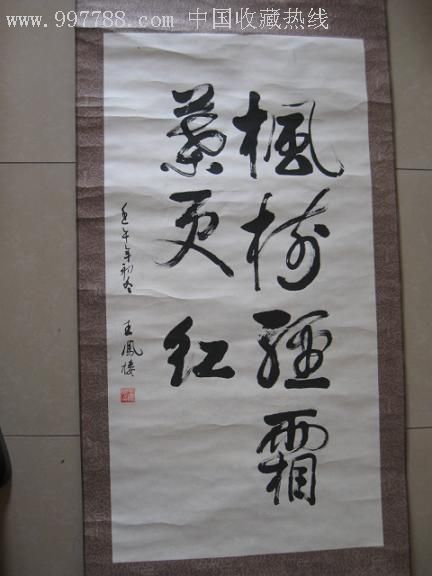 www.997788.com 中国收藏热线
楓樹經霜
葉更红
壬午年初冬 王鳳楼